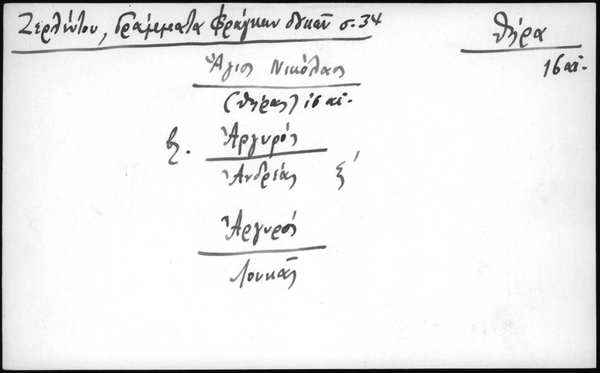 Ζερλέντου, Γράμματα Φράγκων δουκῶν σ. 34
Θήρα
16 αἰ.
Ἅγιος Νικόλαος
(Θήρας) 16 αἰ.
Ἀργυρός
Ἀνδρέας
Ἀργυρός
Λουκᾶς